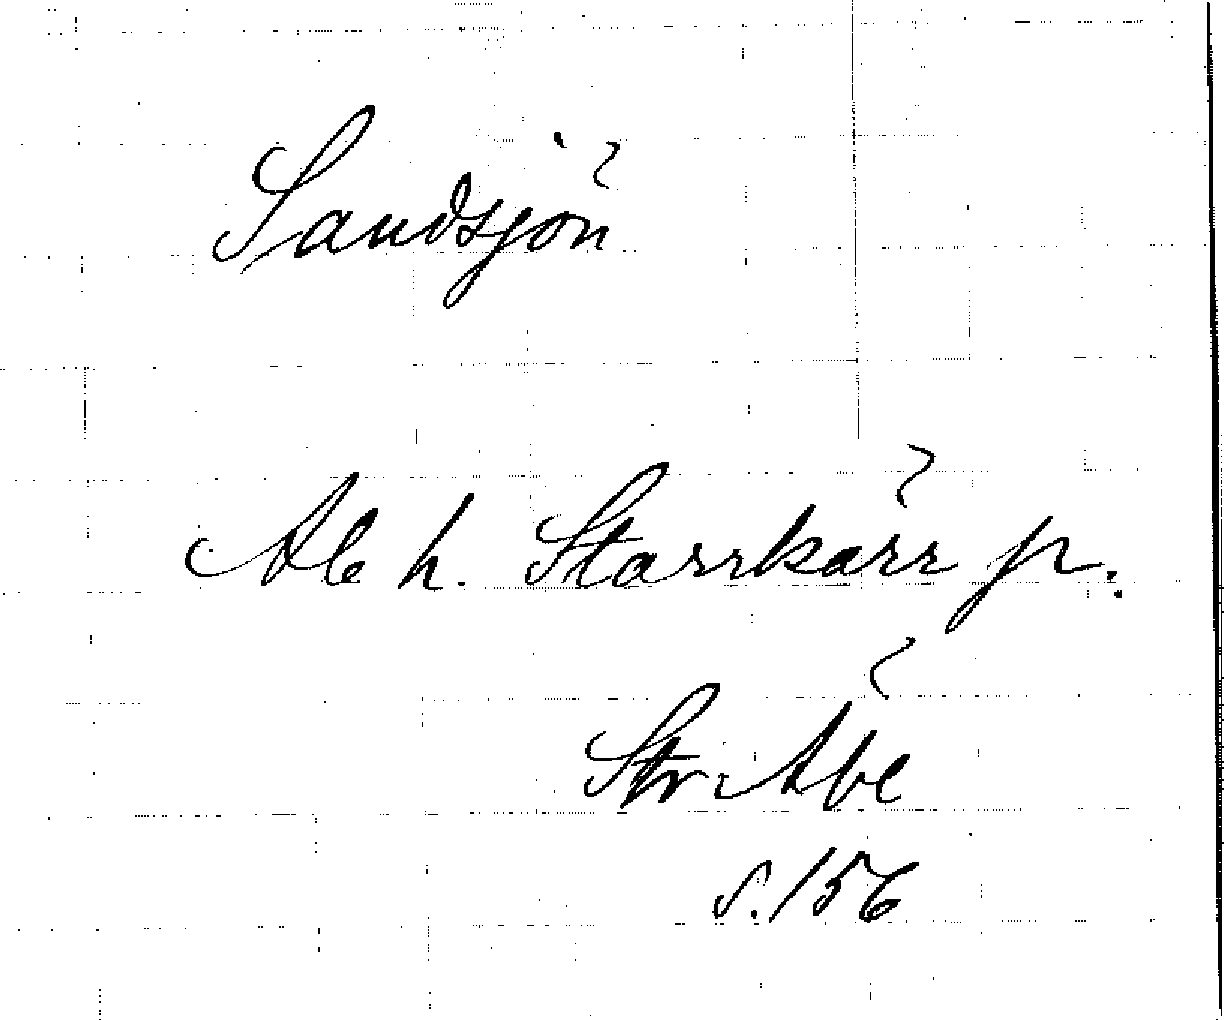 Sandsjön
Ale h. Starrkärr p.
Str Åbe
s. 156